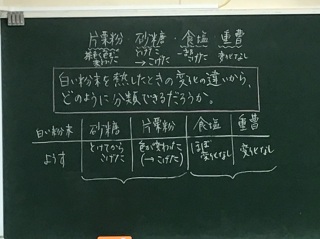 片栗粉・砂糖・食塩・重曹
こげた 変化なし
→こげた
白い粉末を熱したときの変化の違いから、
どのように分類できるだろうか。
白い粉末 砂糖 片栗粉 食塩 重曹
ようす とけてから 色が変わった ほぼ 変化なし
こげた (→こげた) 変化なし